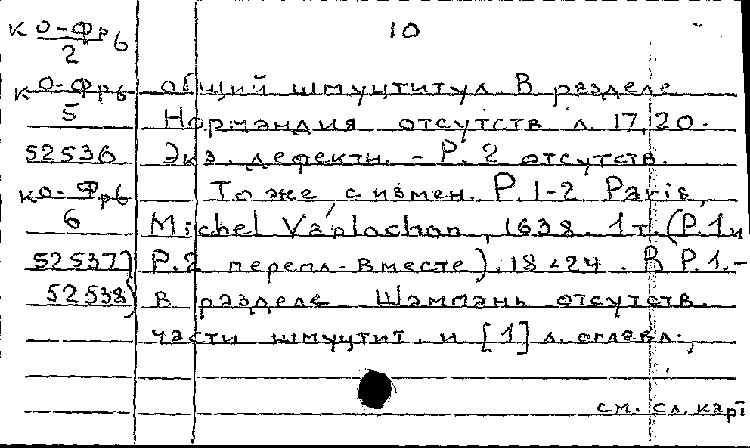 КО-Фр6 10
2
КО-Фр6 общий шмуцтитул. В разделе
5 Нормандия отсутств. л. 17, 20.
52536 Экз. дефектн. - P. 2 отсутств.
КО-Фр6 То же, с измен. P. 1-2 Paris,
6 Michel Vanlochon, 1638. 1 т. (P. 1 и
52537) P. 2 перепл. вместе). 18×24. В P. 1.-
52538) в разделе Шампань отсутств.
части шмуцтит. и [1] л. оглавл.;
см. сл. карт